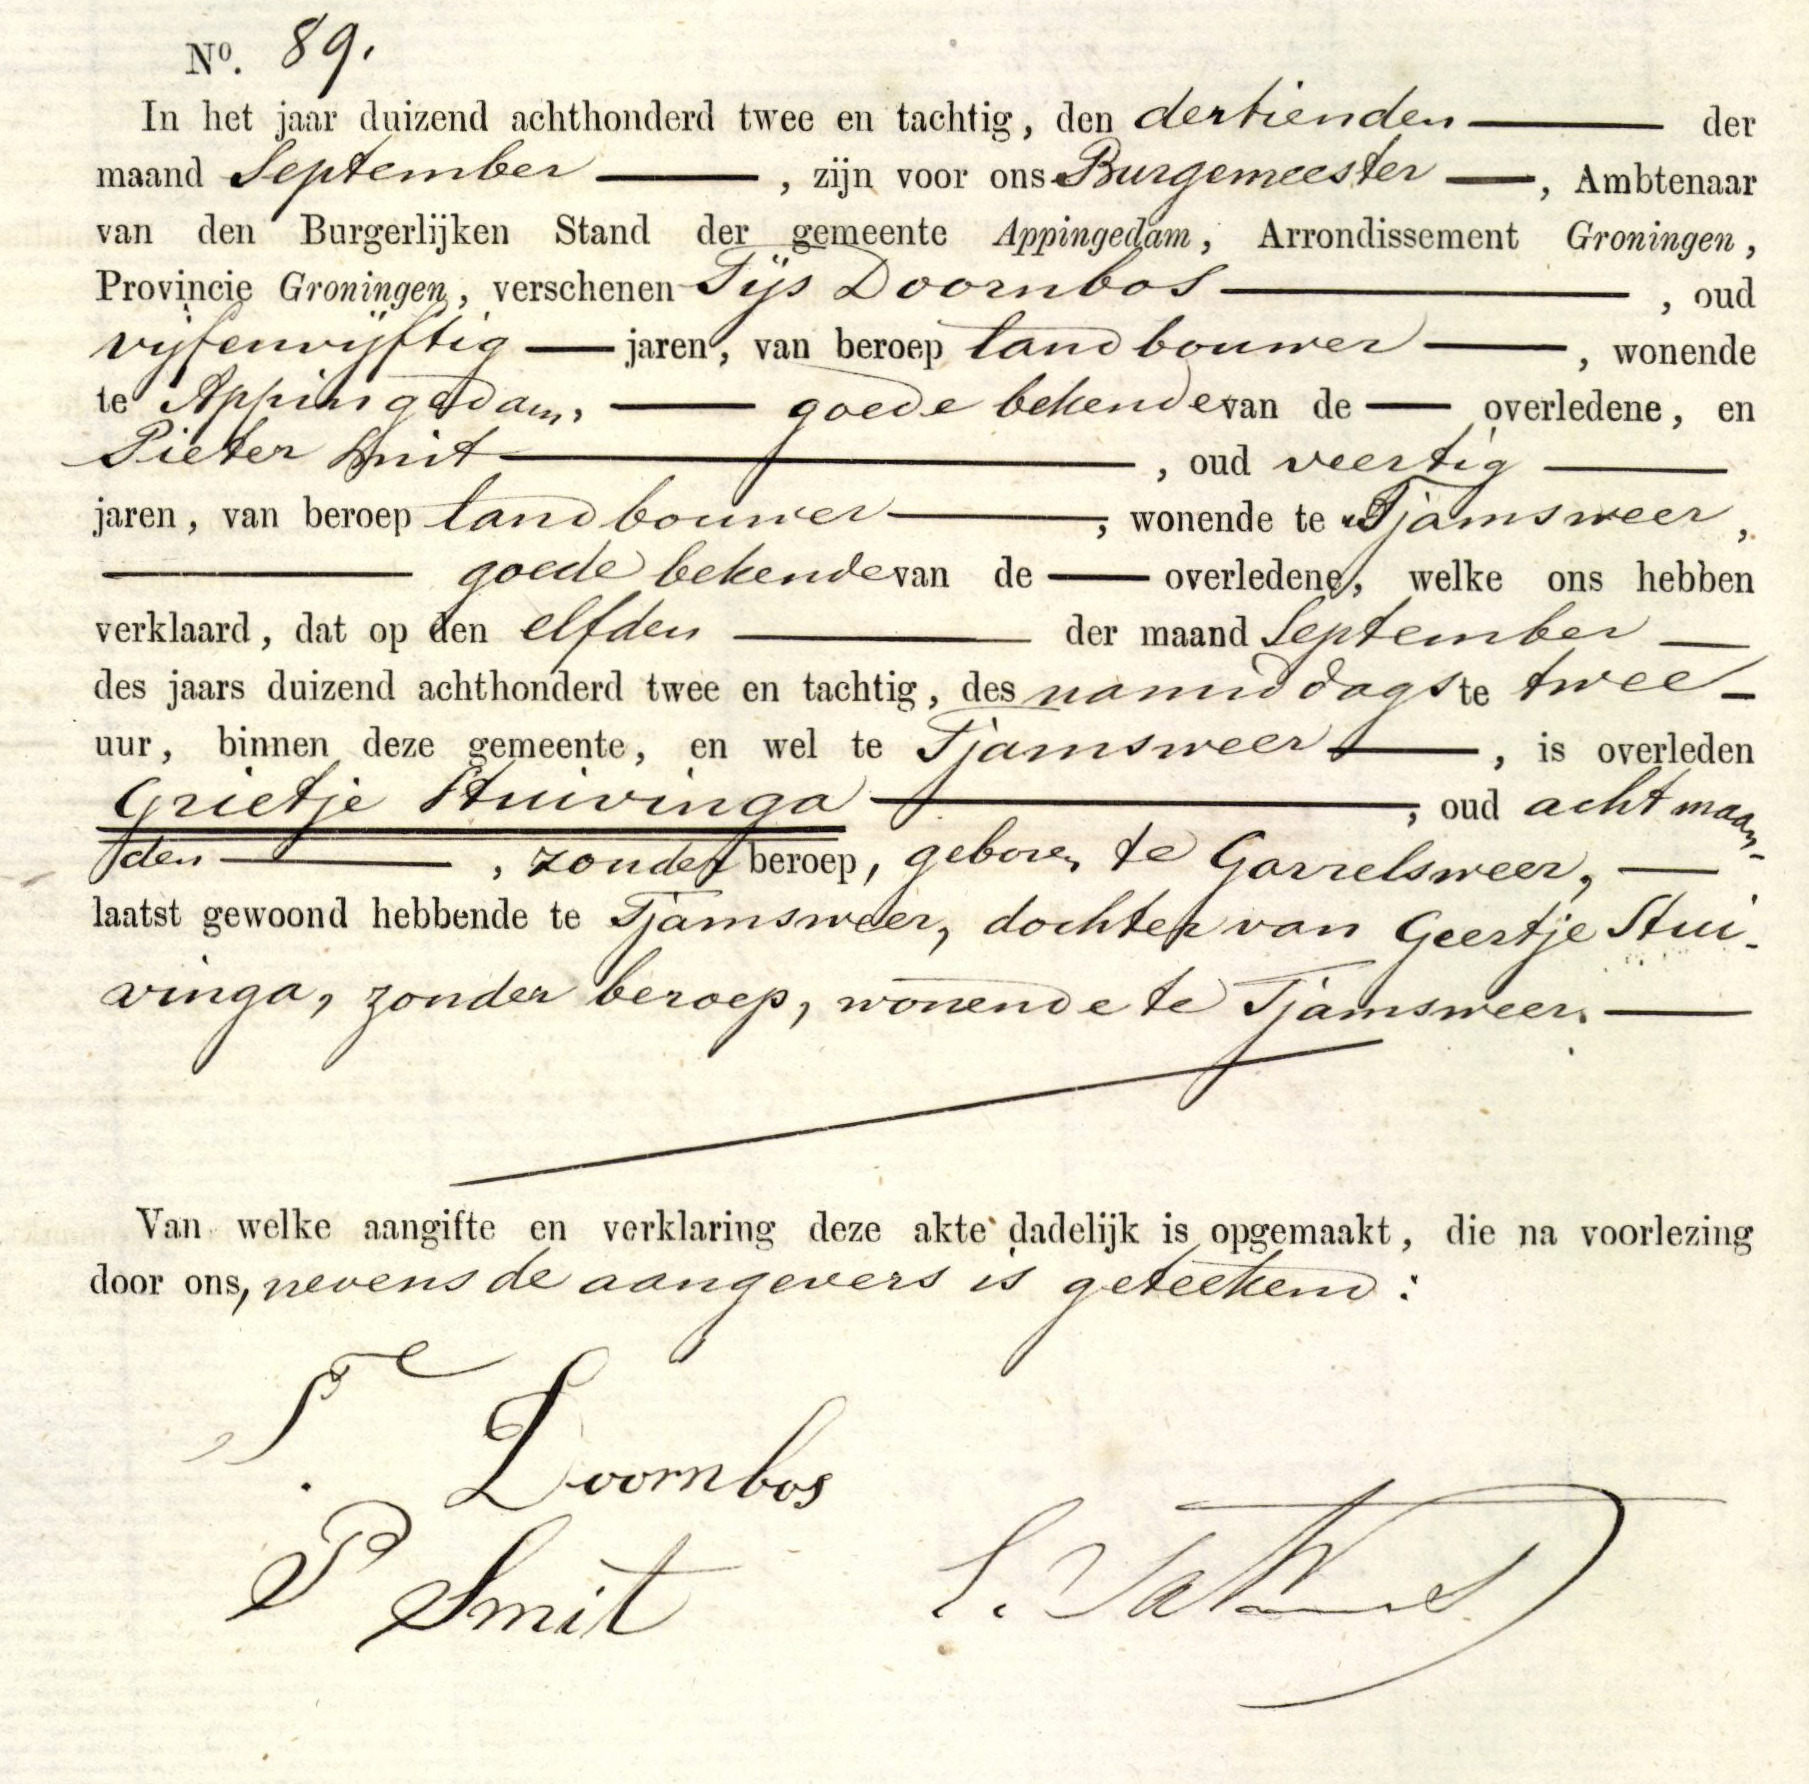 No. 89.
In het jaar duizend achthonderd twee en tachtig, den dertienden der
maand September, zijn voor ons Burgemeester, Ambtenaar
van den Burgerlijken Stand der gemeente Appingedam, Arrondissement Groningen,
Provincie Groningen, verschenen Tijs Doornbos, oud
vijfenvijftig jaren, van beroep landbouwer, wonende
te Appingedam, goede bekende van de overledene, en
Pieter Smit, oud veertig
jaren, van beroep landbouwer, wonende te Tjamsweer,
goede bekende van de overledene, welke ons hebben
verklaard, dat op den elfden der maand September
des jaars duizend achthonderd twee en tachtig, des namiddags te twee
uur, binnen deze gemeente, en wel te Tjamsweer, is overleden
Grietje Stuivinga, oud acht maan-
den, zonder beroep, geboren te Garrelsweer,
laatst gewoond hebbende te Tjamsweer, dochter van Geertje Stui-
vinga, zonder beroep, wonende te Tjamsweer.
Van welke aangifte en verklaring deze akte dadelijk is opgemaakt, die na voorlezing
door ons, nevens de aangevers is geteekend:
T. Doornbos
P Smit